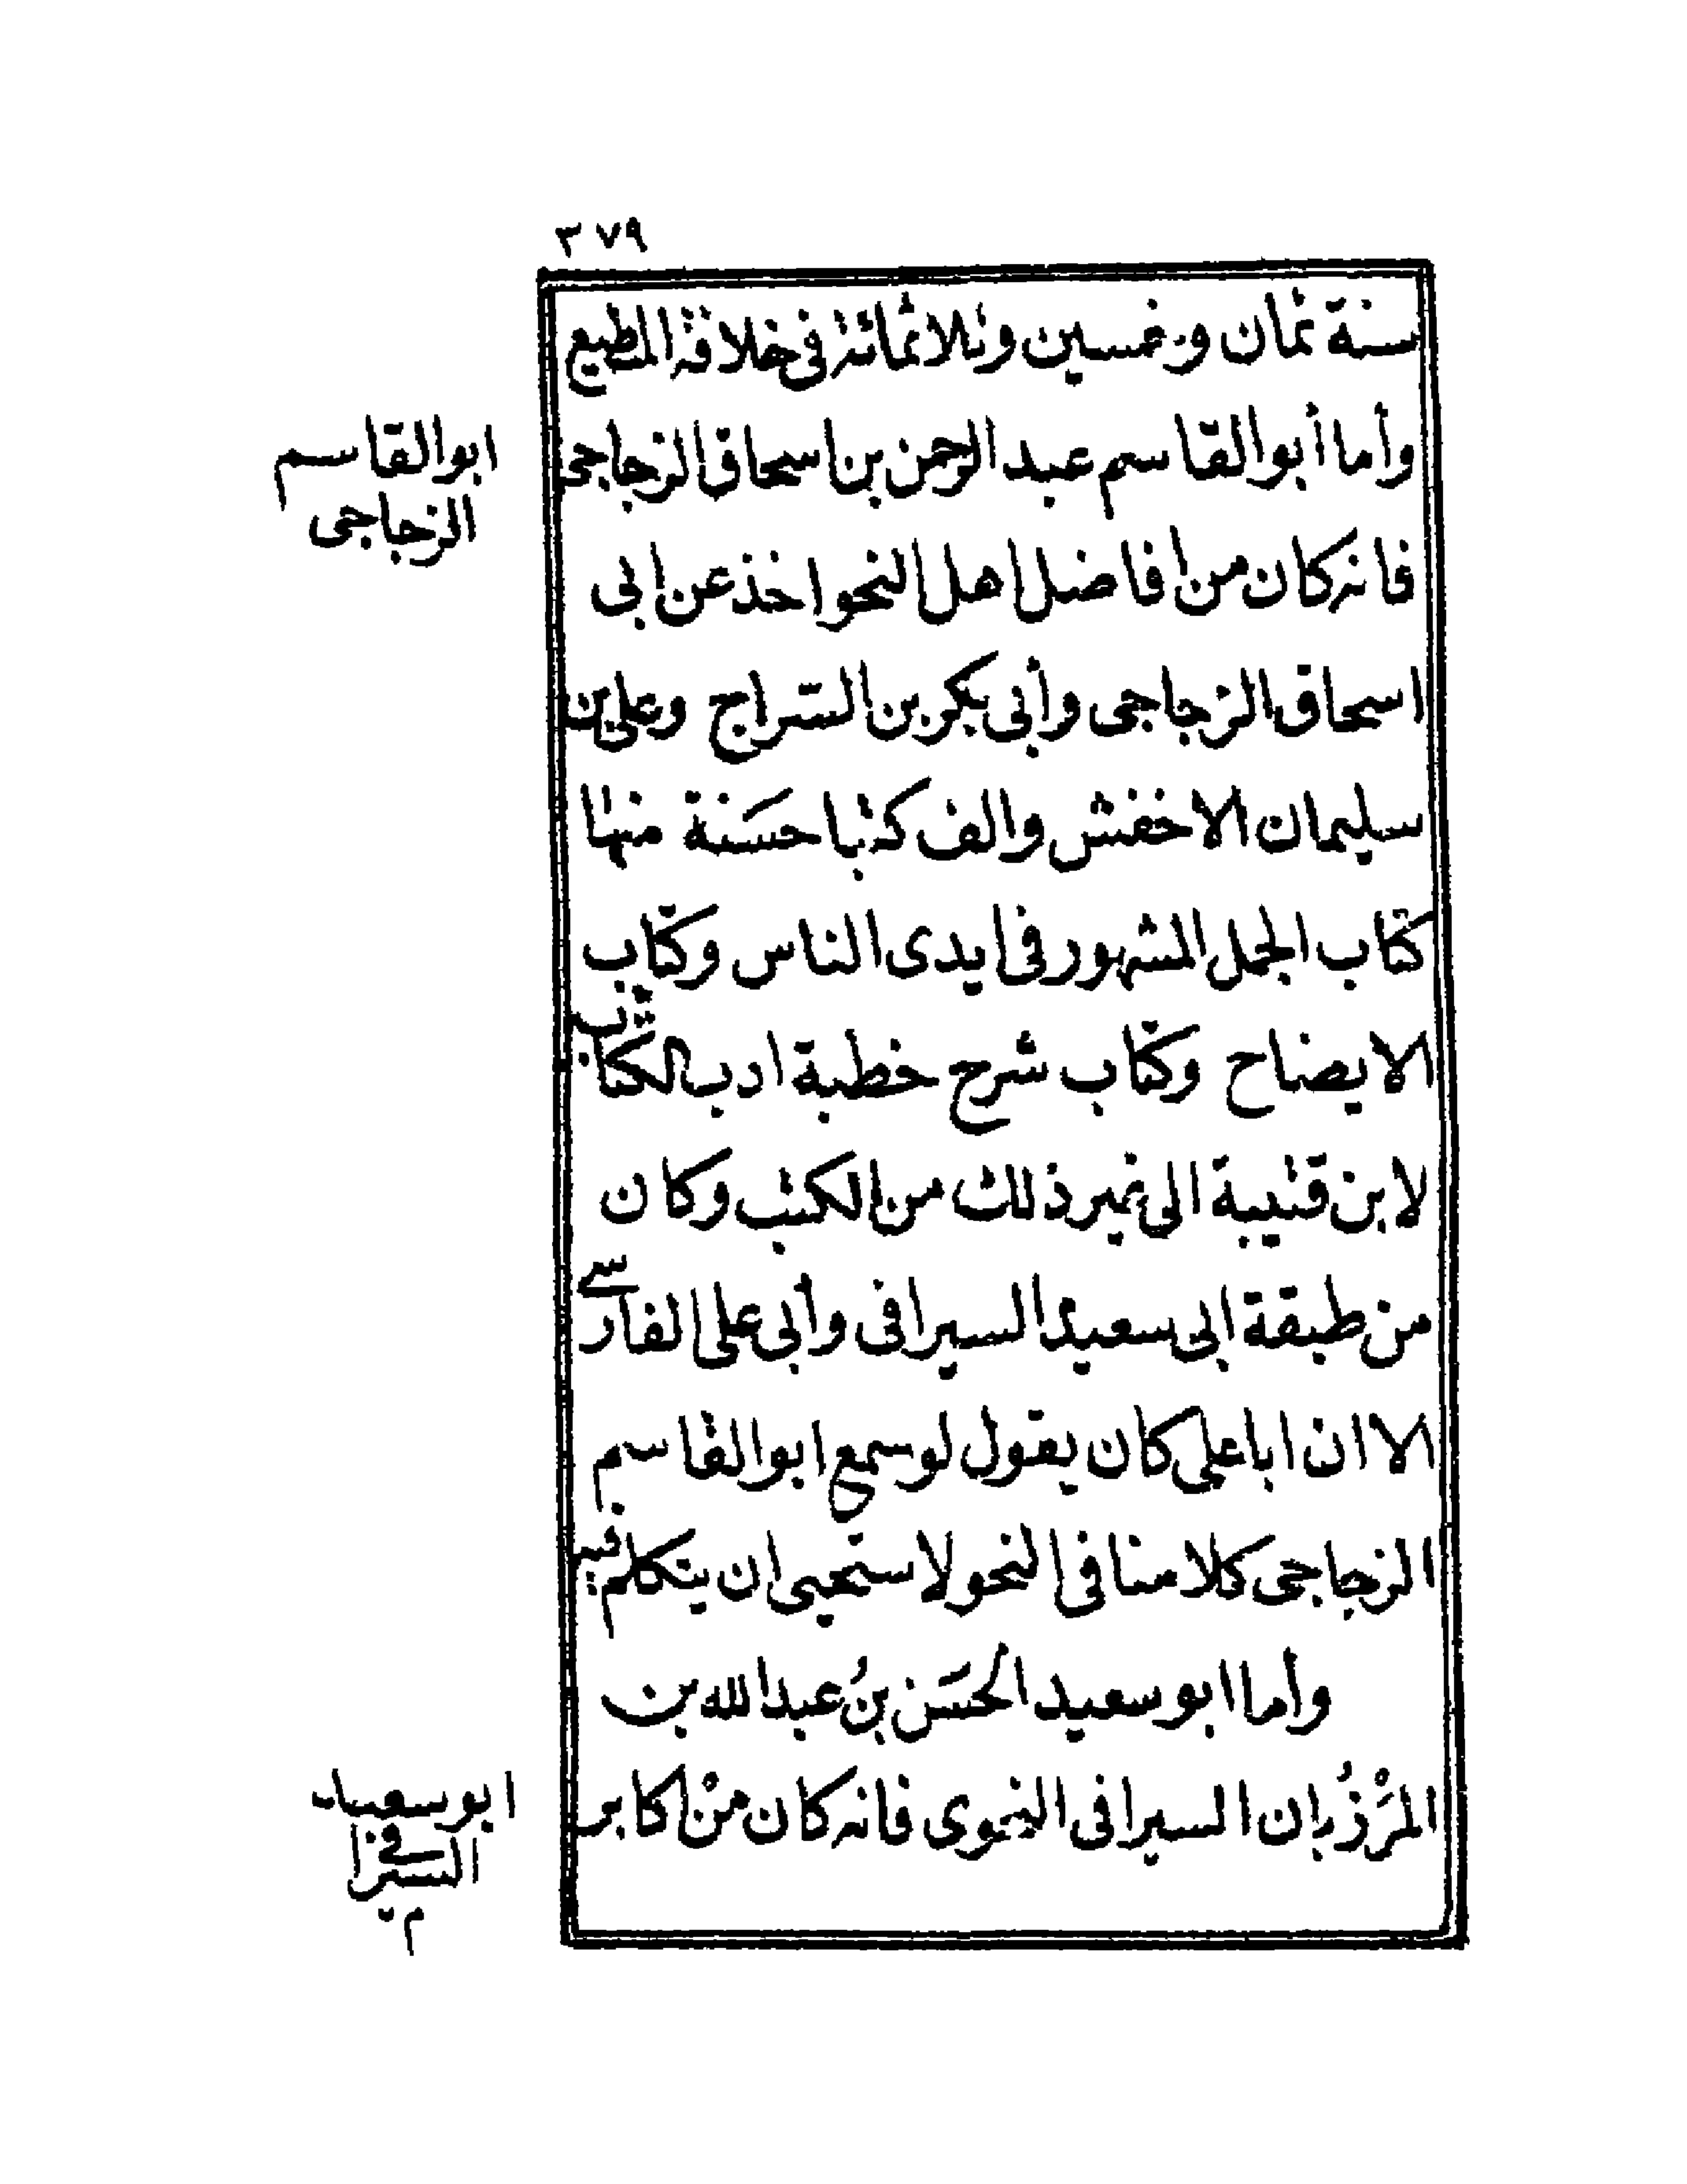 ٣٧٩
سنة ثمان وخمسين وثلاثمائة في خلافة المطيع
وأما أبو القاسم عبد الرحمن بن اسحاق الزجاجى
ابو القاسم
الزجاجى
فانه كان من افاضل اهل النحو اخذ عن ابى
اسحاق الزجاجى وأبى بكر بن السّراج وعلى بن
سليمان الاخفش والف كتبا حسَنة منها
كتاب الجمل المشهور فى ايدى الناس وكتاب
الايضاح وكتاب شرح خطبة ادب الكتاب
لابن قتيبة الى غير ذلك من الكتب وكان
من طبقة ابى سعيد السيرافى وأبى على الفارسے
الا ان ابا على كان يقول لو سمع ابو القاسم
الزجاجى كلامنا فى النحو لاستحيى ان يتكلم فيه
وأما ابو سعيد الحسَن بنُ عبد الله بن
المرْزُبان السيرافى النحوى فانه كان منْ اكابر
ابو سعيد
السيرافے
م